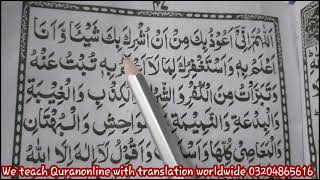 ٧٤
اَللّٰهُمَّ اِنِّیْ اَعُوْذُ بِكَ مِنْ اَنْ اُشْرِكَ بِكَ شَيْئًا وَّاَنَا
اَعْلَمُ بِهٖ وَاَسْتَغْفِرُكَ لِمَا لَا بِهٖ تُبْتُ عَنْهُ
وَتَبَرَّأْتُ مِنَ الْكُفْرِ وَالشِّرْكِ وَالْكِذْبِ وَالْغِيْبَةِ
وَالْبِدْعَةِ وَالنَّمِيْمَةِ وَالْفَوَاحِشِ وَالْبُهْتَانِ
وَالْمَعَاصِیْ كُلِّهَا وَاَسْلَمْتُ وَاَقُوْلُ لَآ اِلٰهَ اِلَّا اللّٰهُ
We teach Quranonline with translation worldwide 03204865616